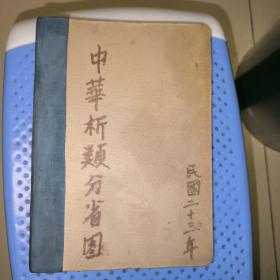 中華析類分省圖
民國二十三年